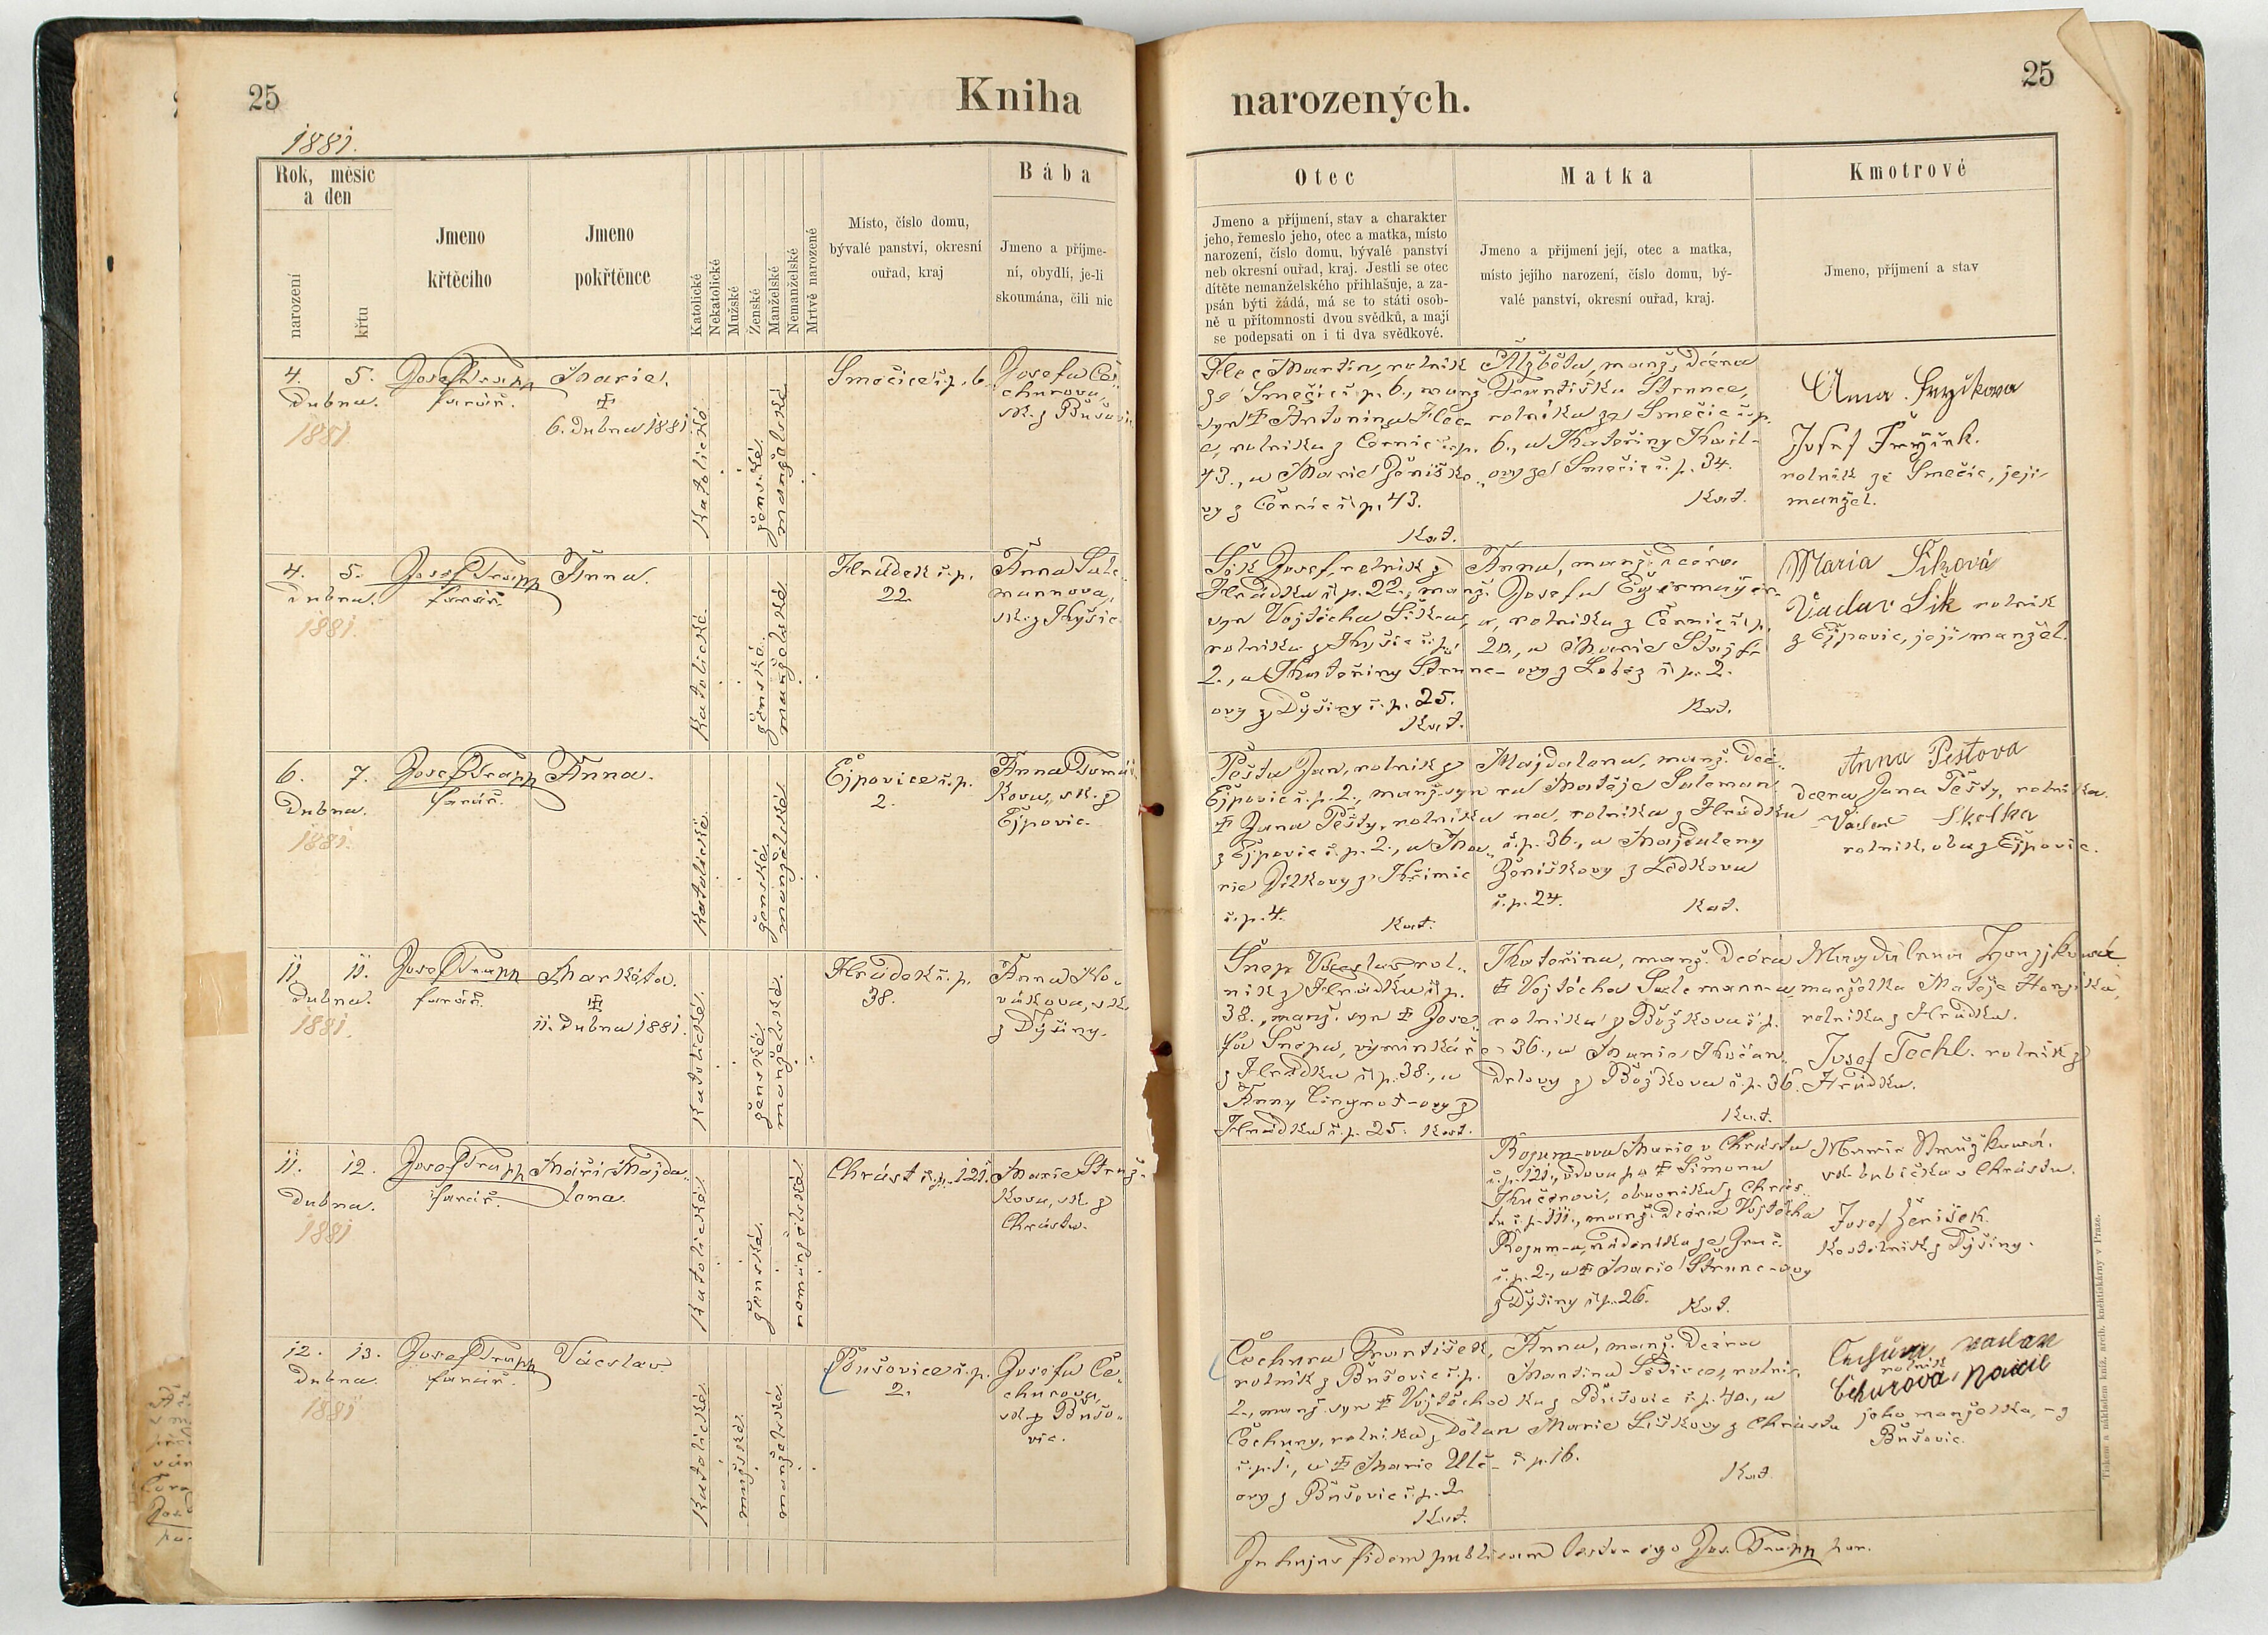 25
Kniha
narozených.
25
1881.
Rok, měsíc
a den
narození
křtu
Jmeno
křtěcího
Jmeno
pokřtěnce
Katolické
Nekatolické
Mužské
Ženské
Manželské
Nemanželské
Mrtvě narozené
Místo, číslo domu,
bývalé panství, okresní
ouřad, kraj
Bába
Jmeno a příjme-
ní, obydlí, je-li
skoumána, čili nic
Otec
Jmeno a příjmení, stav a charakter
jeho, řemeslo jeho, otec a matka, místo
narození, číslo domu, bývalé panství
neb okresní ouřad, kraj. Jestli se otec
dítěte nemanželského přihlašuje, a za-
psán býti žádá, má se to státi osob-
ně u přítomnosti dvou svědků, a mají
se podepsati on i ti dva svědkové.
Matka
Jmeno a přijmení její, otec a matka,
místo jejího narození, číslo domu, bý-
valé panství, okresní ouřad, kraj.
Kmotrové
Jmeno, příjmení a stav
4. 5.
Dubna.
1881
Josef Trapp
farář.
Marie.
6. Dubna 1881.
Katolické
ženské
manželské
Směčice č. p. 6.
Josefa Če-
churova,
zk. z Bušovic
Martin, rolník
ze Smečic č. p. 6., manž.
syn Antonína
a, rolníka z Černic č. p.
43., a Marie Ženíško-
vy z Černic č. p. 43.
Kat.
Alžběta, manž. dcéra
Františka Strunce,
rolníka ze Smečic č. p.
6., a Kateřiny
ovy ze Smečic č. p. 34.
Kat.
Josef
rolník ze Smečic, její
manžel.
4. 5.
Dubna.
1881.
Josef Trapp
farář.
Anna.
Katolické.
ženské.
manželské
Hrádek č. p.
22.
Anna Sule-
mannova,
zk. z Kyšic.
Šik Josef, rolník z
Hrádku č. p. 22., manž.
syn Vojtěcha Šika,
rolníka z Kyšic č. p.
2., a Kateřiny Strunc-
ovy z Dýšiny č. p. 25.
Kat.
Anna, manž. dcéra
Josefa
a, rolníka z Černic č. p.
20., a Marie
ovy z Lobez č. p. 2.
Kat.
Maria Šiková
Václav Šik rolník
z Ejpovic, její manžel.
6. 7.
Dubna.
1881.
Josef Trapp
farář.
Anna.
Katolické.
ženské
manželské
Ejpovice č. p.
2.
Anna Tomáš-
kova, zk. z
Ejpovic.
Pešta Jan, rolník z
Ejpovic č. p. 2., manž. syn
Jana Pešty, rolníka
z Ejpovic č. p. 2., a Ma-
rie Jílkovy z Křimic
č. p. 4.
Kat.
Majdalena, manž. dcé-
ra Matěje Suleman-
na, rolníka z Hrádku
č. p. 36., a Majdaleny
Ženíškovy z Lédkova
č. p. 24.
Kat.
Anna Pestova
dcera Jana Pešty, rolníka.
Václav Skelka
rolník, oba z Ejpovic.
11. 11.
Dubna.
1881.
Josef Trapp
farář.
Markéta.
11. Dubna 1881.
Katolické.
ženské
manželské.
Hrádek č. p.
38.
Anna No-
vákova, zk.
z Dýšiny.
Šnep Václav rol-
ník z Hrádku č. p.
38., manž. syn Jose-
fa Šnepa, výminkáře
z Hrádku č. p. 38., a
Anny Cingroš-ovy z
Hrádku č. p. 25. Kat.
Kateřina, manž. dcéra
Vojtěcha Sulemann-a,
rolníka z Božkova č. p.
36., a Marie
z Božkova č. p. 36.
Kat.
Magdalena Honzjkowá
manželka Matěje Honzíka,
rolníka z Hrádku.
Josef Techl. rolník z
Hrádku.
11. 12.
Dubna.
1881
Josef Trapp
farář.
Máři Majda-
lena.
Katolické
ženské.
nemanželské
Chrást č. p. 121.
Marie Struž-
kova, zk. z
Chrástu.
Rozum-ova Marie v Chrástu
č. p. 121., vdova po Šimonu
Kučerovi, obuvníku z Chrás-
tu č. p. 111., manž. dcéra Vojtěcha
Rozum-a, nádeníka ze
č. p. 2., a Marie Strunc-ovy
z Dýšiny č. p. 26.
Kat.
Marie Stružkowá.
zk. babička v Chrástu.
Josef Ženíšek
kostelník z Dýšiny.
12. 13.
Dubna.
1881
Josef Trapp
farář.
Václav
Katolické
mužské.
manželské
Bušovice č. p.
2.
Josefa Če-
churova,
zk. z Bušo-
vic.
Čechura František,
rolník z Bušovic č. p.
2., manž. syn Vojtěcha
Čechury, rolníka z Dolan
č. p. 1., a Marie Ulč-
ovy z Bušovic č. p. 2
Kat.
Anna, manž. dcéra
Martina Sedivce, rolní-
ka z Bušovic č. p. 40., a
Marie Liškovy z Chrástu
č. p. 16.
Kat.
rolník
jeho manželka, z
Bušovic.
In hujus fidem publicam testor ego Jos. Trapp par.
Tiskem a nákladem kníž. arcib. kněhtiskárny v Praze.